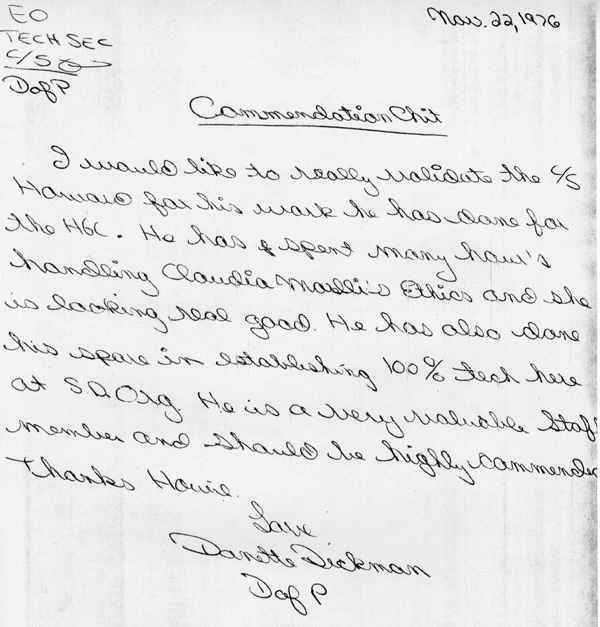 EO
Nov. 22, 1976
TECH SEC
C/S
D of P
Commendation Chit
I would like to really validate the C/S
Howard for his work he has done for
the HGC. He has spent many hour's
handling Claudia Ethics and she
is looking real good. He has also done
his spare in establishing 100% tech here
at S.D. Org. He is a very valuable Staff
member and should be highly commended
Thanks Howie.
Love
Danette Dickman
D of P